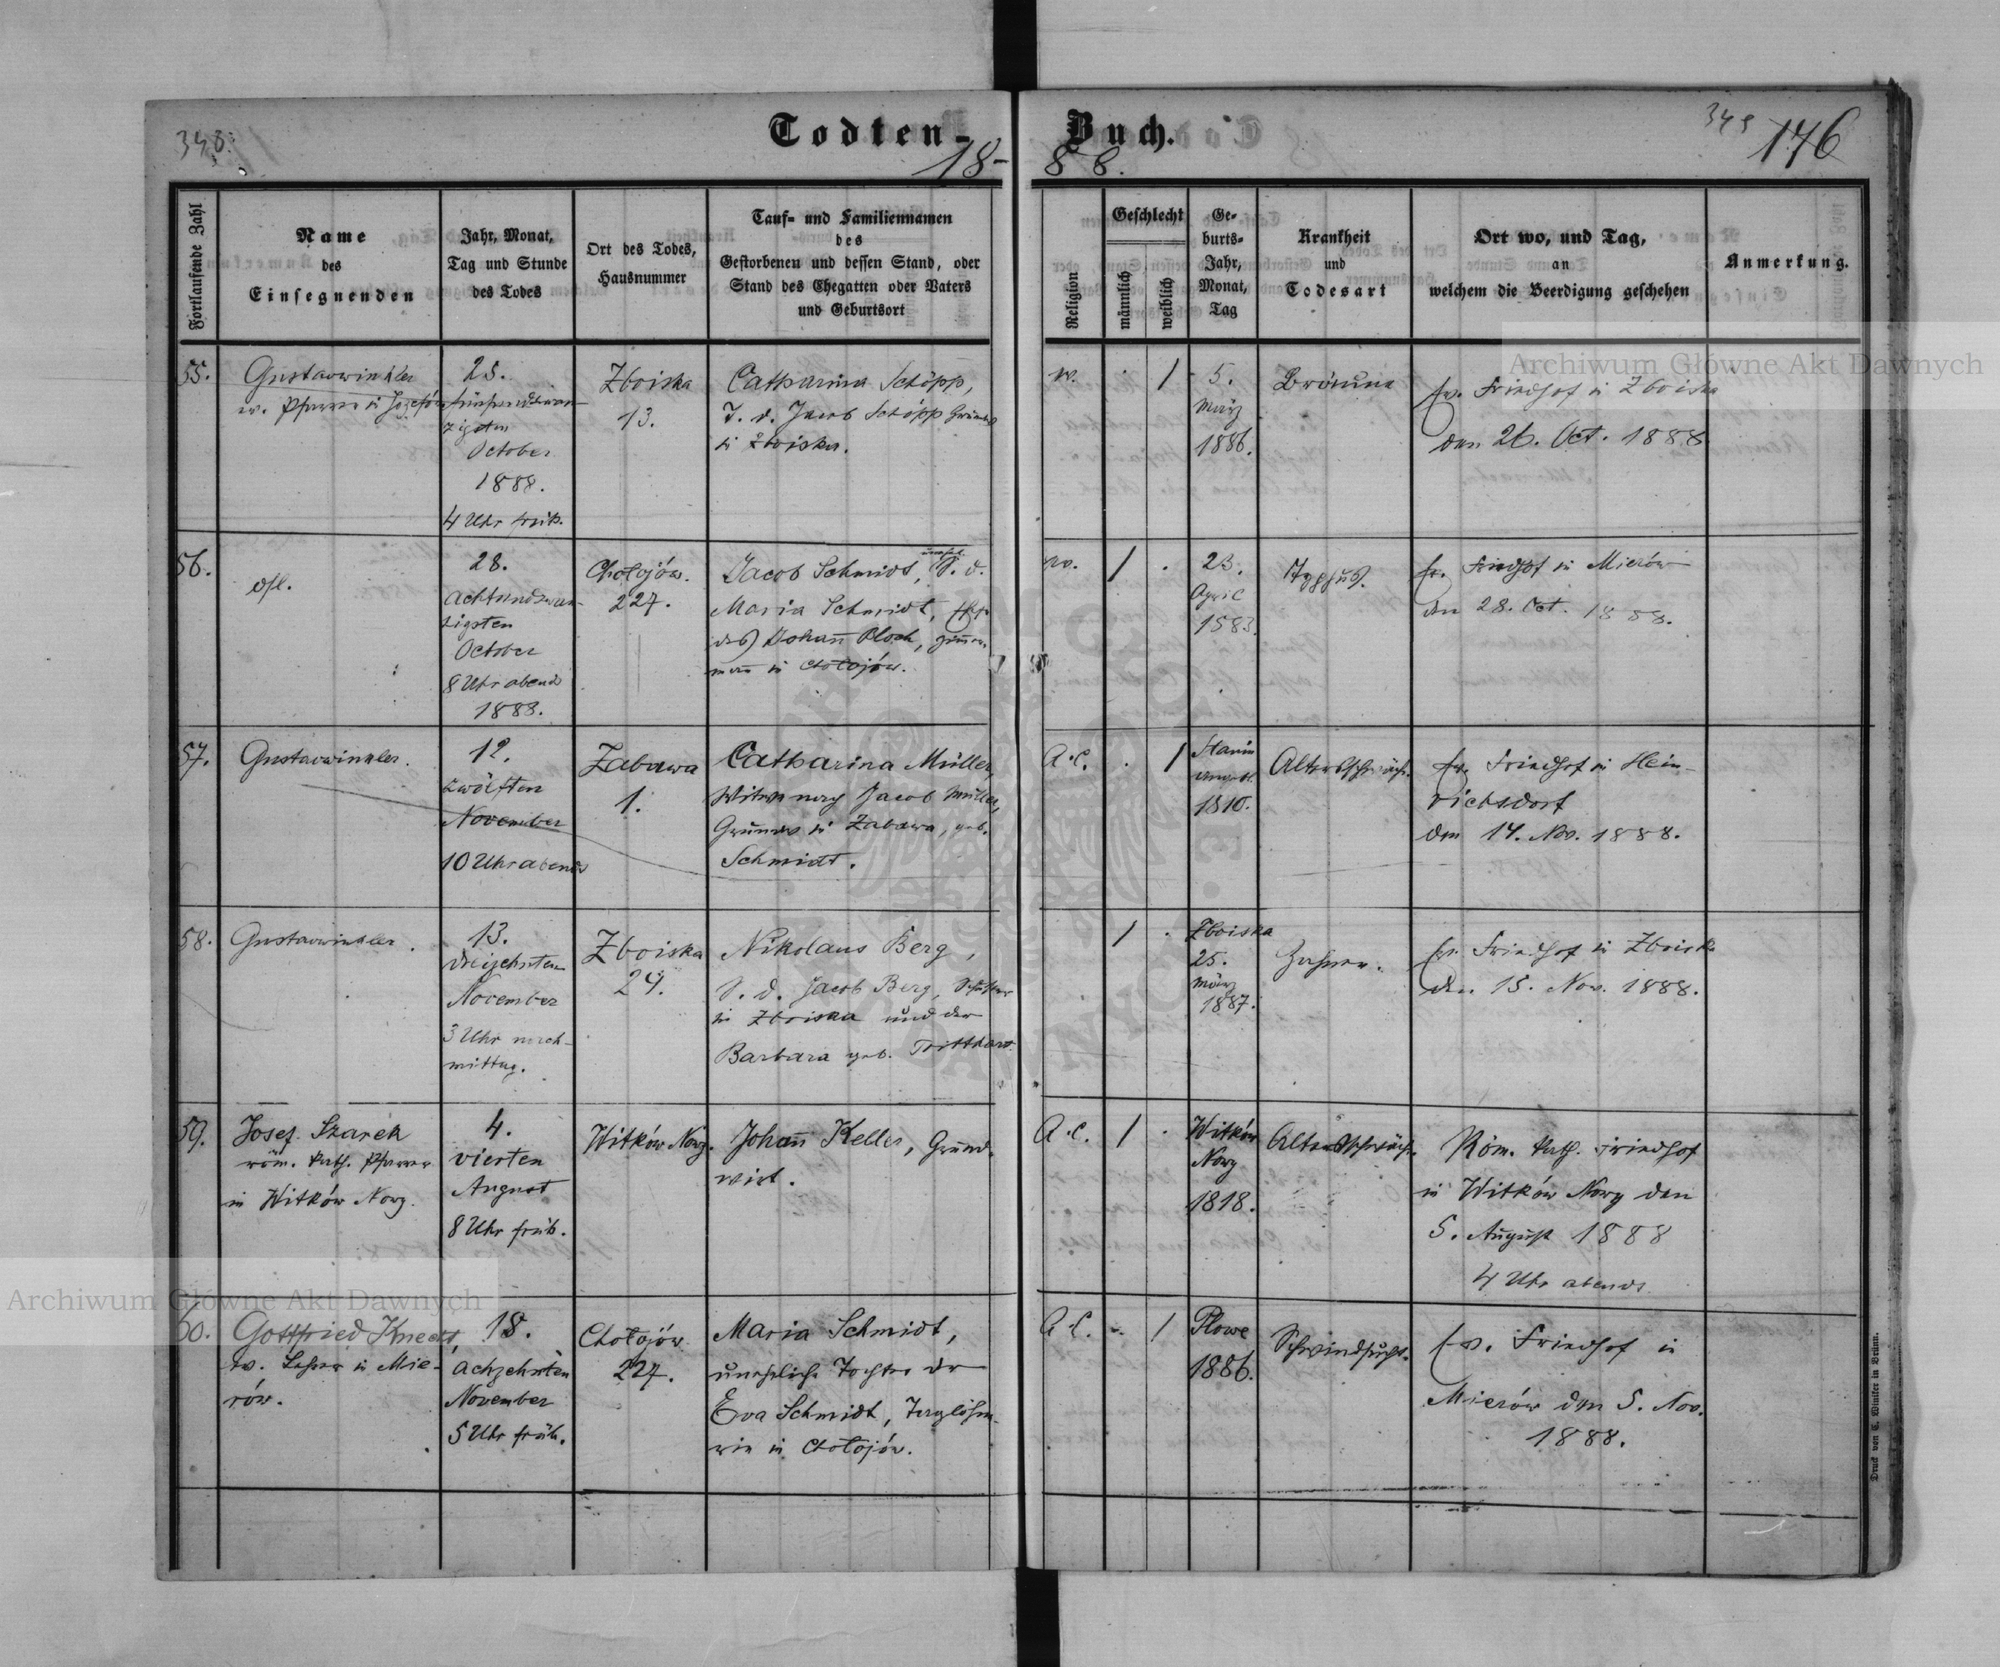 348.
Todten-Buch.
18-88.
349
176
Fortlaufende Zahl
Name
des
Einsegnenden
Jahr, Monat,
Tag und Stunde
des Todes
Ort des Todes,
Hausnummer
Tauf- und Familiennamen
des
Gestorbenen und dessen Stand, oder
Stand des Ehegatten oder Vaters
und Geburtsort
Religion
Geschlecht
männlich
weiblich
Ge-
burts-
Jahr,
Monat,
Tag
Krankheit
und
Todesart
Ort wo, und Tag,
an
welchem die Beerdigung geschehen
Anmerkung.
55.
Gustav Winkler
ev. Pfarrer in Józefów
25.
fünfundzwan-
zigsten
October
1888.
4 Uhr früh.
Zboiska
13.
Catharina Schöpp,
T. d. Jacob Schöpp Grundw
in Zboiska.
1
5.
März
1886.
Bräune
ev. Friedhof in Zboiska
den 26. Oct. 1888
56.
28.
achtundzwan-
zigsten
October
8 Uhr abends
1888.
Chołojów.
227.
Jacob Schmidt, unehel. S. d.
Maria Schmidt,
des Johann Bloch, Zimmer-
mann in Chołojów.
1
.
23.
April
1883.
Typhus.
ev. Friedhof in Mierów
den 28. Oct. 1888.
57.
Gustav Winkler.
12.
zwölften
November
10 Uhr abends
Zabawa
1.
Catharina Müller,
Witwe nach Jacob Müller,
Grundw in Zabawa, geb.
Schmidt.
A.C.
.
1
1810.
Altersschwäche
ev. Friedhof in Hein-
richsdorf
den 14. Nov. 1888.
58.
Gustav Winkler.
13.
dreizehnten
November
3 Uhr nach-
mittag.
Zboiska
24.
Nikolaus Berg,
S. d. Jacob Berg,
in Zboiska und der
Barbara geb.
1
.
Zboiska
25.
März
1887.
Zahnen.
ev. Friedhof in Zboiska
den 15. Nov. 1888.
59.
Josef Szarek
röm. kath. Pfarrer
in Witków Nowy.
4.
vierten
August
8 Uhr früh.
Witków Nowy.
Johann Keller, Grund-
wirt.
A.C.
1
.
Witków
Nowy
1818.
Altersschwäche.
Röm. kath. Friedhof
in Witków Nowy den
5. August 1888
4 Uhr abends
60.
Gottfried Knecht,
ev. Lehrer in Mie-
rów.
18.
achzehnten
November
5 Uhr früh.
Chołojów
227.
Maria Schmidt,
uneheliche Tochter der
Eva Schmidt, Taglöhne-
rin in Chołojów.
A.C.
1
Płowe
1886.
Schwindsucht.
Ev. Friedhof in
Mierów den 5. Nov.
1888.
Druck von C. Winiker in Brünn.
Archiwum Główne Akt Dawnych
Archiwum Główne Akt Dawnych